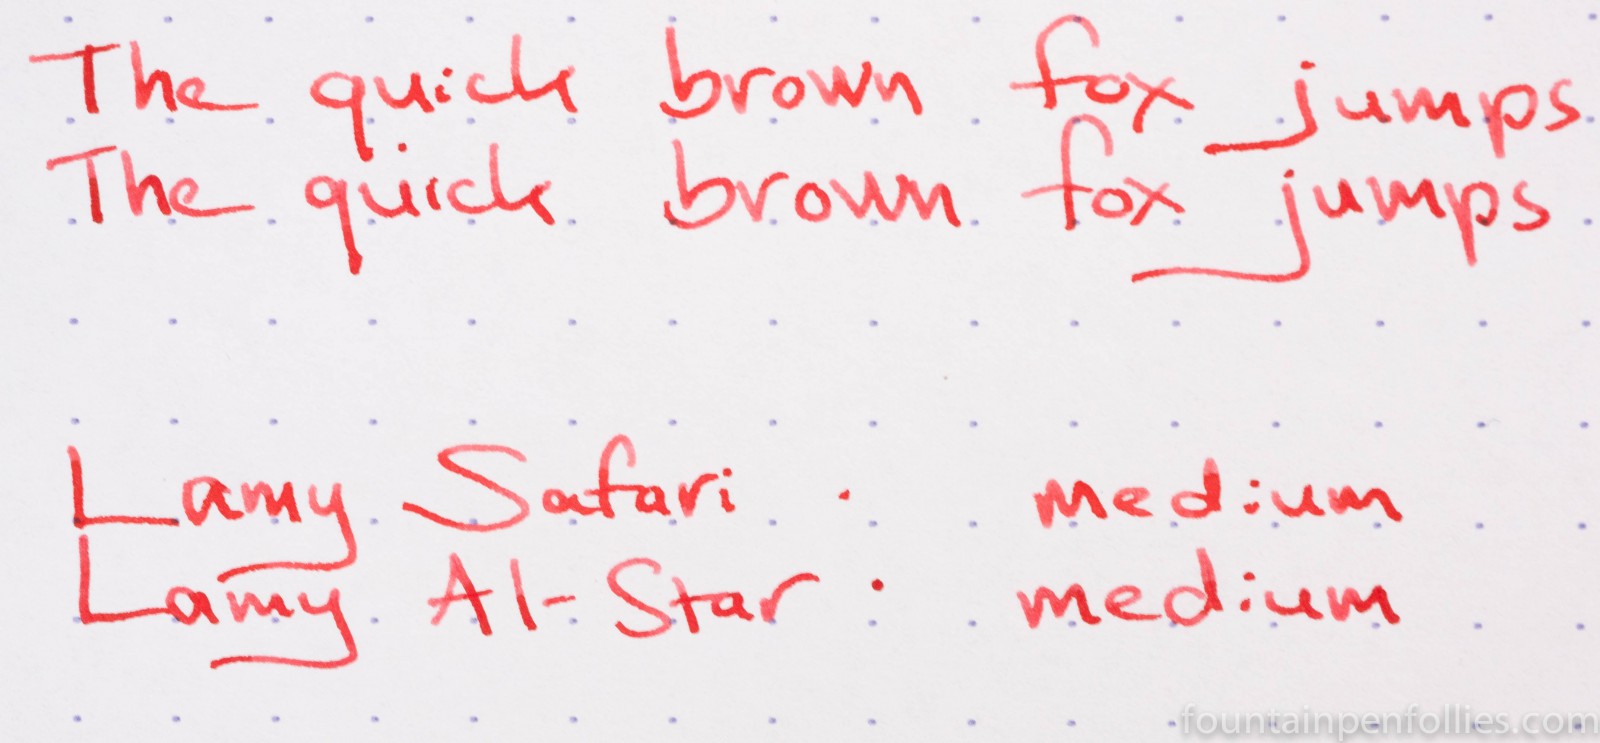 The quick brown fox jumps
The quick brown fox jumps
Lamy Safari · medium
Lamy Al-Star · medium
fountainpenfollies.com